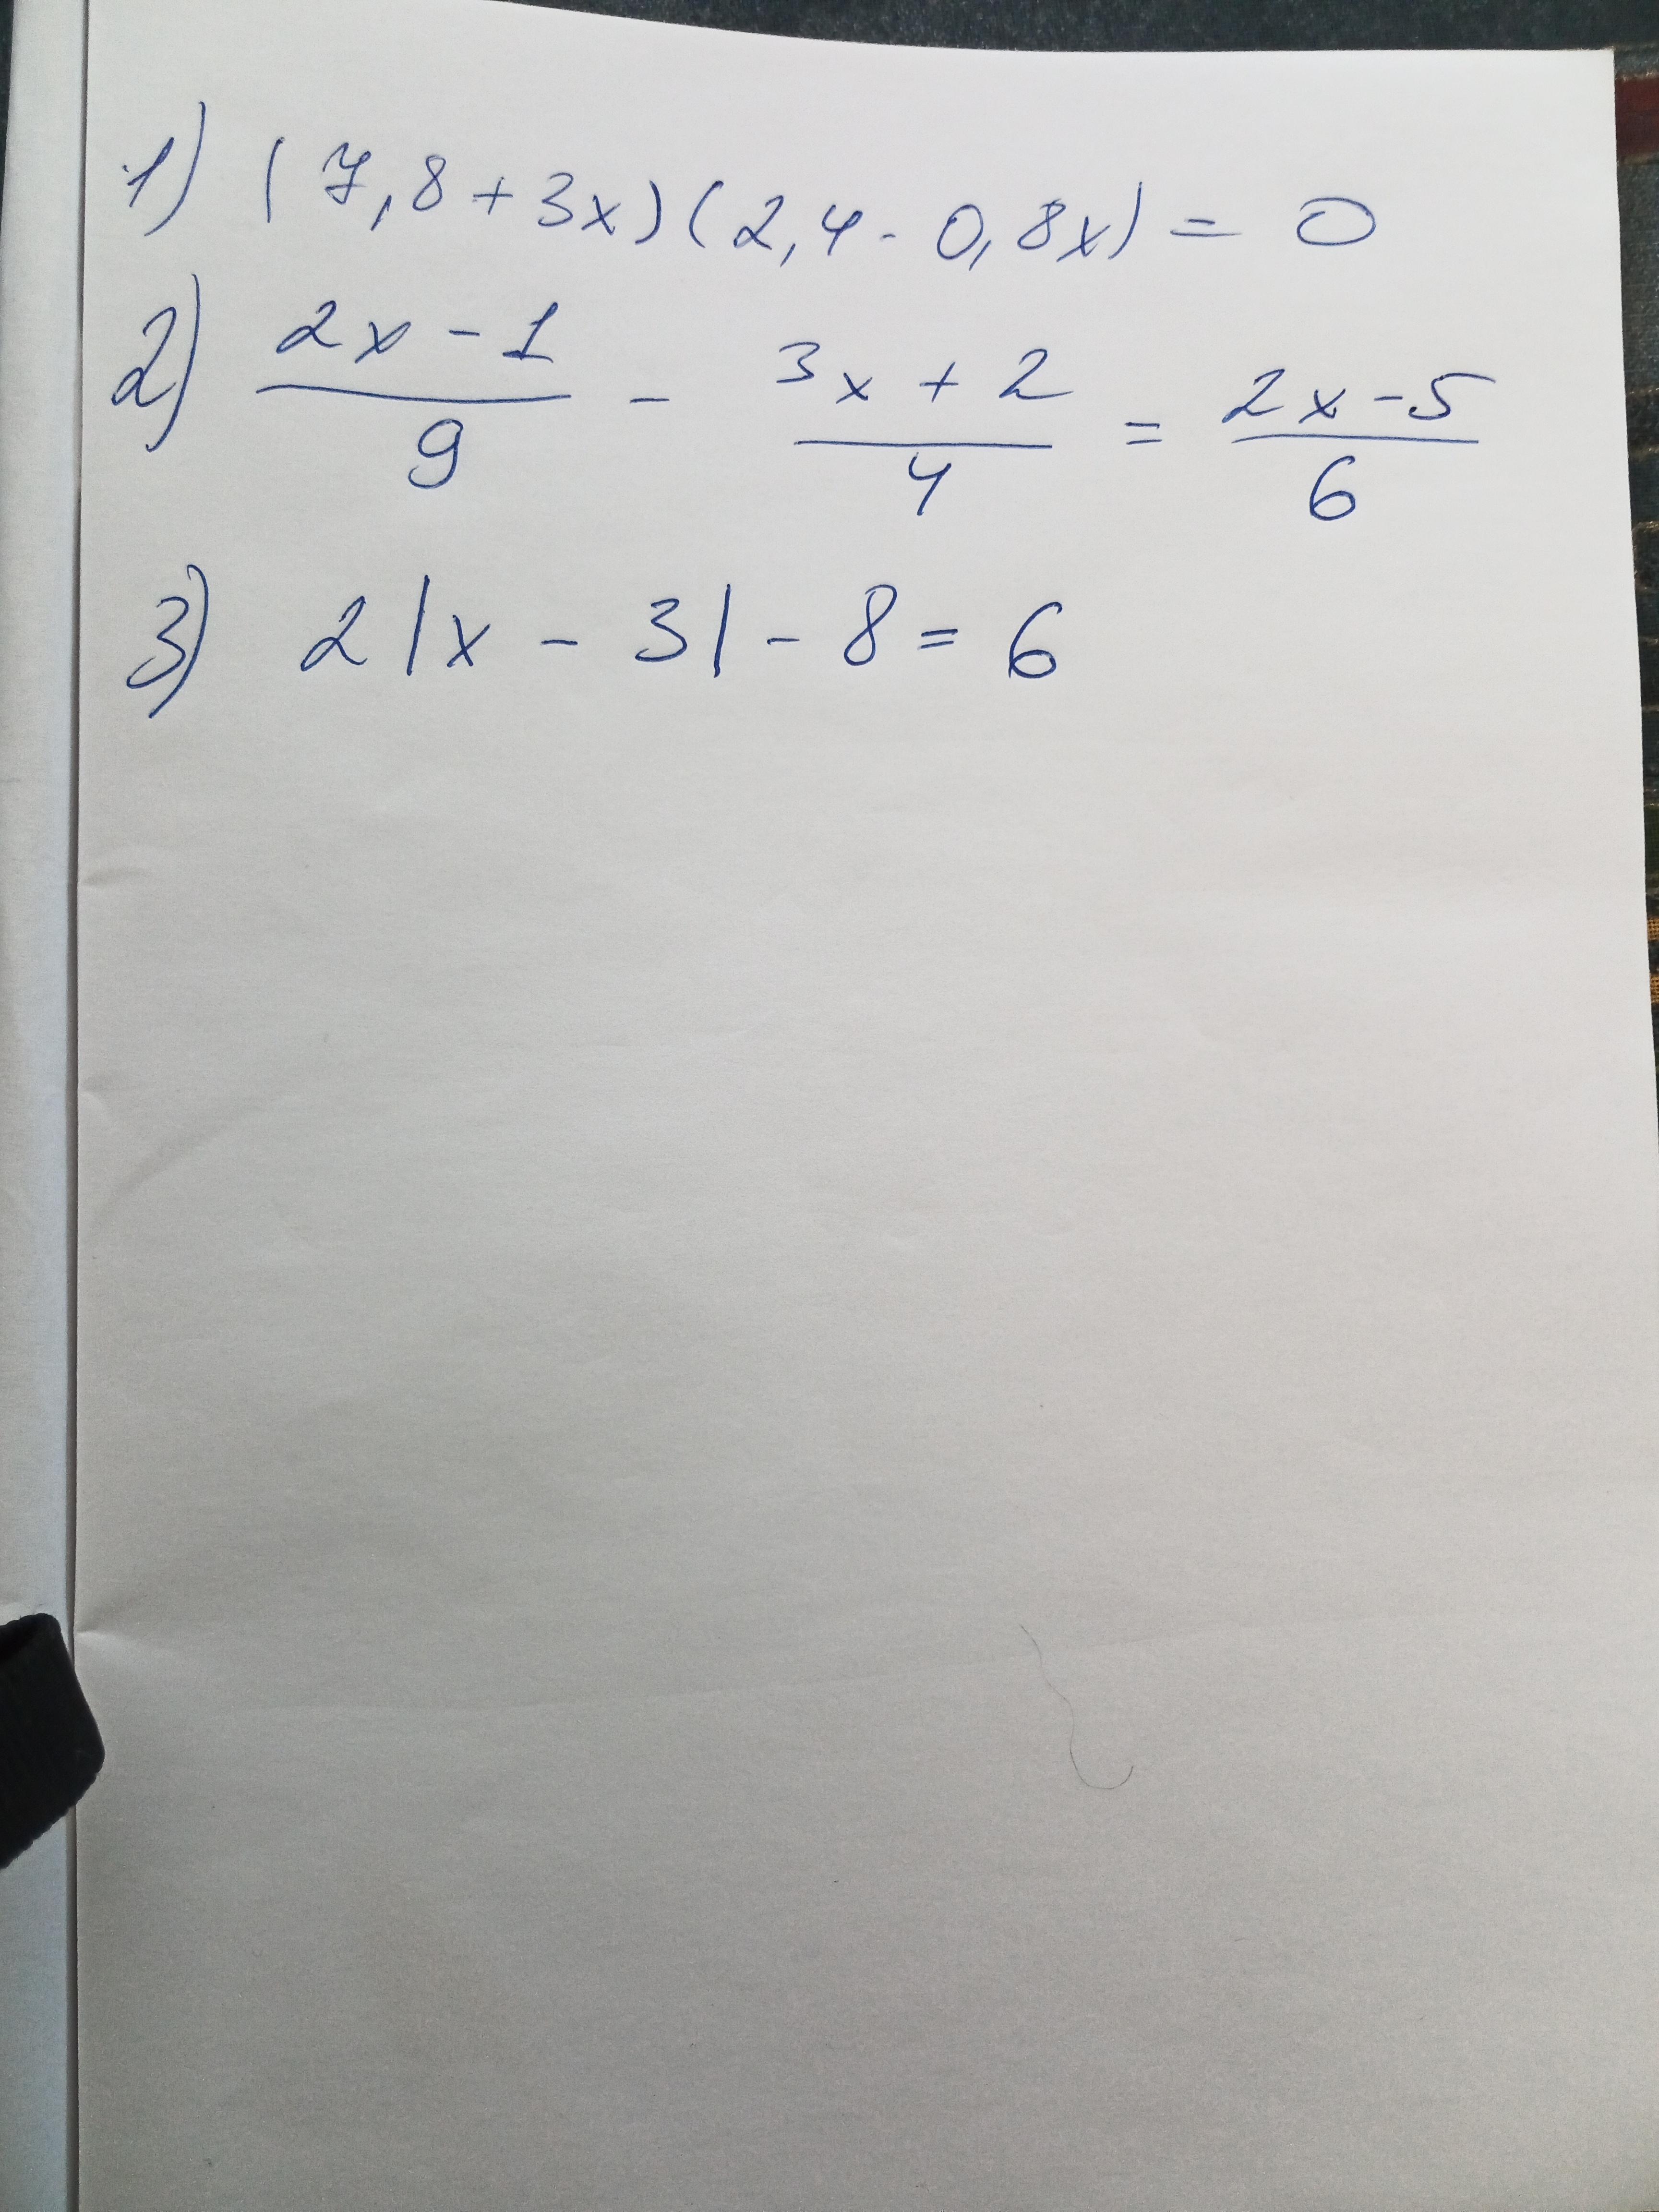 1) (7,8+3x)(2,4-0,8x)=0
2) (2x-1)/9 - (3x+2)/4 = (2x-5)/6
3) 2|x-3|-8=6